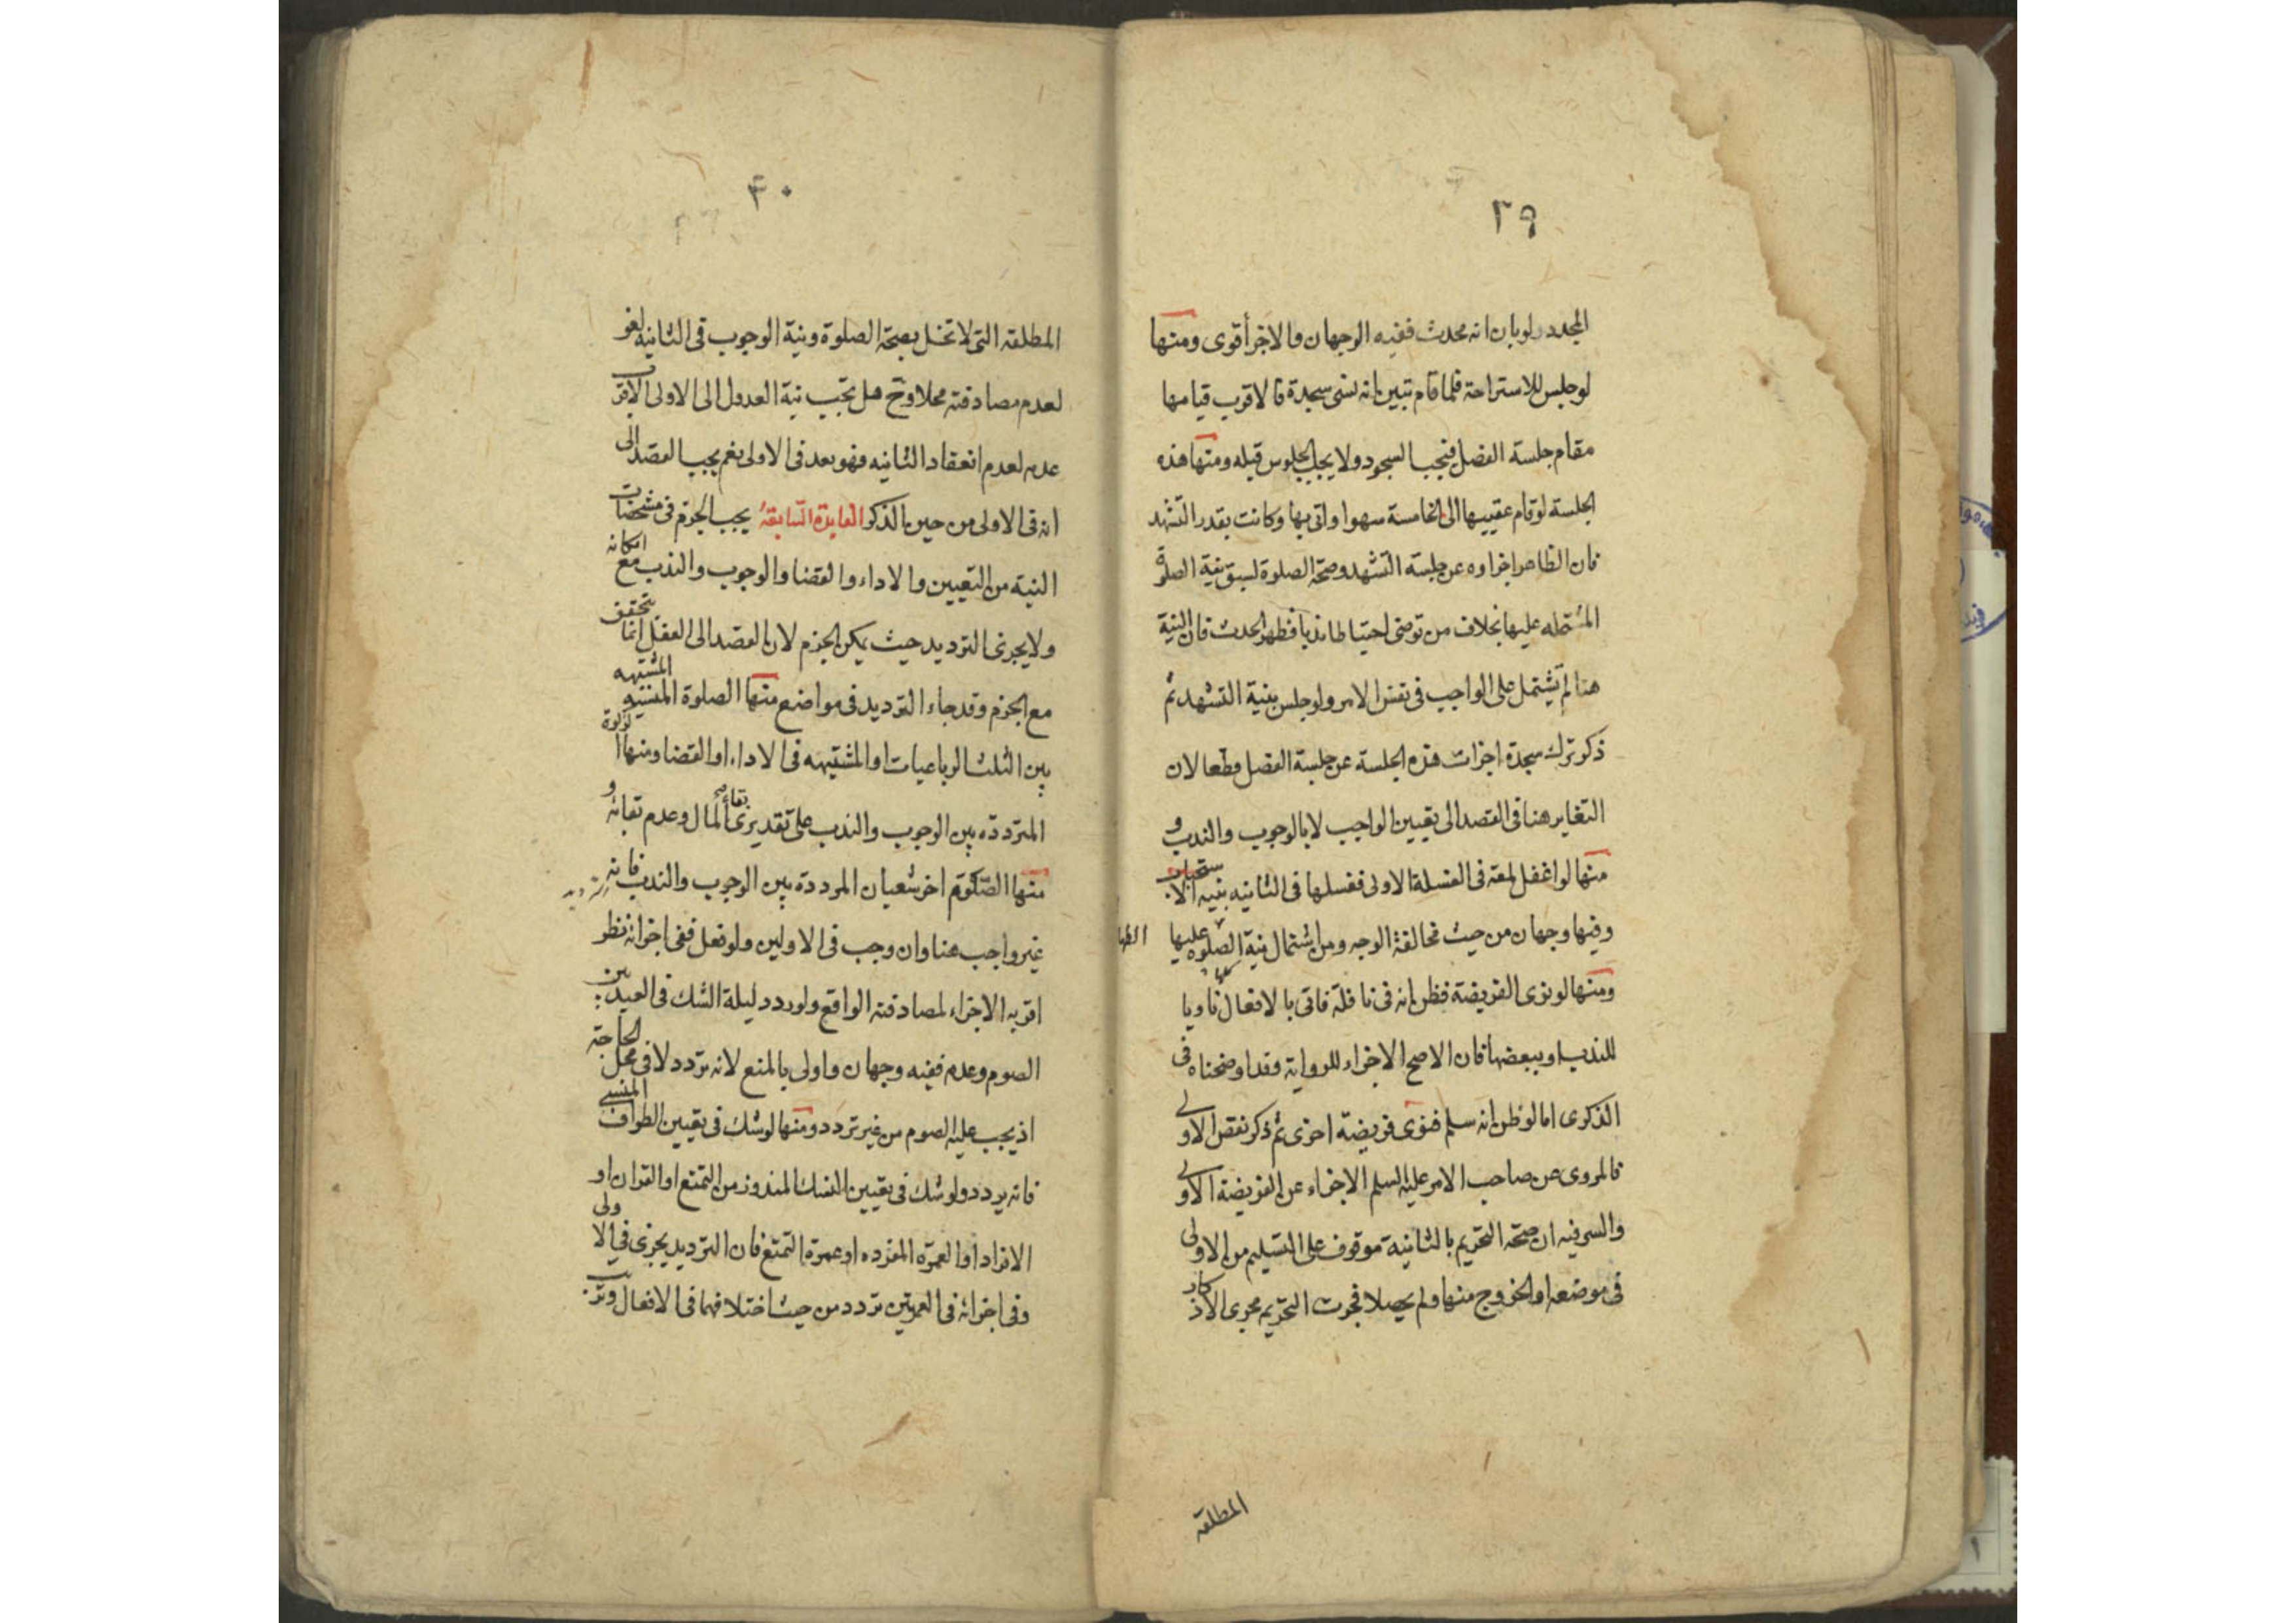 ٢٩
المجدد ولو بان انه محدث ففيه الوجهان والاجزأ أقوى ومنها
لو جلس للاستراحة فلما قام تبين انه نسى سجدة فالاقرب قيامها
مقام جلسة الفصل فيجب السجود ولا يجب الجلوس قبله ومنها هذه
الجلسة لو قام عقيبها الى الخامسة سهوا واتى بها وكانت بقدر التشهد
فان الظاهر اجزاوه عن جلسة التشهد وصحة الصلوة لسبق نية الصلوة
المشتمله عليها بخلاف من توضى احتياطا ندبا فظهر الحدث فان النية
هنا لم يشتمل على الواجب فى نفس الامر ولو جلس بنية التشهد ثم
ذكر ترك سجدة اجزات هذه الجلسة عن جلسة الفصل قطعا لان
التغاير هنا فى القصد الى تعيين الواجب لا بالوجوب والندب و
منها لو اغفل لمعة فى الغسلة الاولى فغسلها فى الثانيه بنيه الاستحباب
وفيها وجهان من حيث مخالفة الوجه ومن اشتمال نية الصلوه عليها
ومنها لو نوى الفريضة فظن انه فى نافلة فاتى بالافعال كلها ناويا
للندب او ببعضها فان الاصح الاجزاء للرواية وقد اوضحناه فى
الذكرى اما لو ظن انه سلم فنوى فريضة اخرى ثم ذكر نقص الاولى
فالمروى عن صاحب الامر عليه السلم الاجزاء عن الفريضة الاولى
والسر فيه ان صحة التحريم بالثانية موقوف على التسليم من الاولى
فى موضعه او الخروج منها ولم يحصلا فجرت التحريم مجرى الاذكار
المطلقه
٣٠
المطلقه التى لا تخل بصحة الصلوة ونية الوجوب فى الثانيه لغو
لعدم مصادفته محلا وح هل تجب نية العدول الى الاولى الاقرب
عدمه لعدم انعقاد الثانيه فهو بعد فى الاولى نعم يجب القصد الى
انه فى الاولى من حين الذكر الفايدة السابقة يجب الجزم فى مشخصات
النية من التعيين والاداء والقضا والوجوب والندب مع امكانه
ولا يجزى الترديد حيث يمكن الجزم لان القصد الى الفعل انما يتحقق
مع الجزم وقد جاء الترديد فى مواضع منها الصلوة المنسيه المشتبهه
بين الثلث الرباعيات او المشتبهه فى الاداء او القضا ومنها الزكوة
المترددة بين الوجوب والندب على تقديرى بقاء المال وعدم بقائه و
منها الصوم اخر شعبان المرددة بين الوجوب والندب فانه
غير واجب هنا وان وجب فى الاولين ولو فعل ففى اجزائه نظر
اقربه الاجزاء لمصادفته الواقع ولو ردد ليلة الشك فى العيد بين
الصوم وعدمه ففيه وجهان واولى بالمنع لانه تردد لا فى محل الحاجة
اذ يجب عليه الصوم من غير تردد ومنها لو شك فى تعيين الطواف المنسى
فانه يردد ولو شك فى تعيين النسك المنذور من التمتع او القران او
الافراد او العمرة المفرده او عمرة التمتع فان الترديد يجزى فى الاولى
وفى اجزائه فى العمرتين تردد من حيث اختلافهما فى الافعال